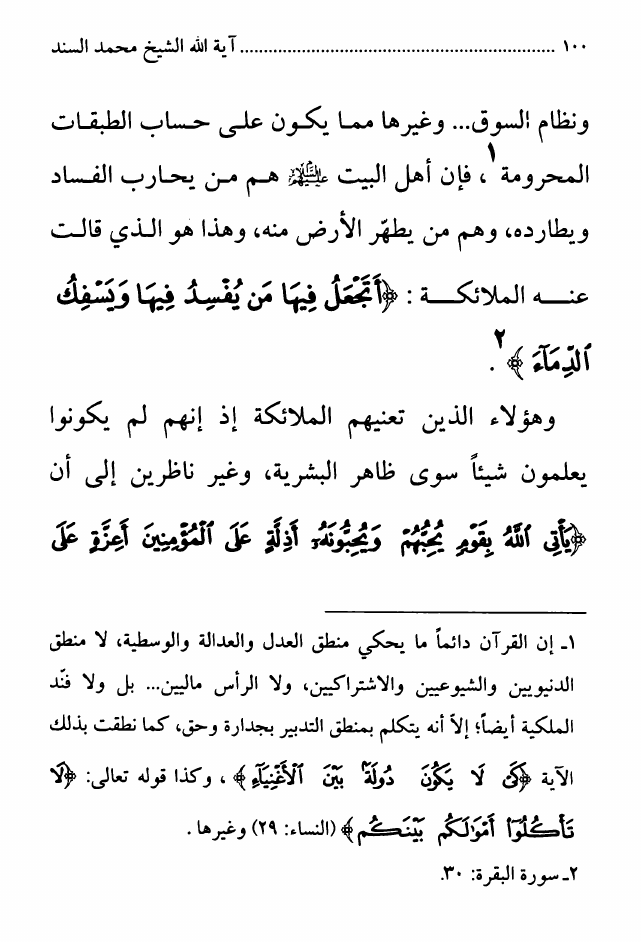 ١٠٠ .................................................................. آية الله الشيخ محمد السند
ونظام السوق... وغيرها مما يكون على حساب الطبقات
المحرومة١، فإن أهل البيت عليهم السلام هم من يحارب الفساد
ويطارده، وهم من يطهّر الأرض منه، وهذا هو الذي قالت
عنه الملائكة: ﴿أَتَجْعَلُ فِيهَا مَن يُفْسِدُ فِيهَا وَيَسْفِكُ
ٱلدِّمَآءَ﴾٢.
وهؤلاء الذين تعنيهم الملائكة إذ إنهم لم يكونوا
يعلمون شيئاً سوى ظاهر البشرية، وغير ناظرين إلى أن
﴿يَأْتِى ٱللَّهُ بِقَوْمٍ يُحِبُّهُمْ وَيُحِبُّونَهُۥٓ أَذِلَّةٍ عَلَى ٱلْمُؤْمِنِينَ أَعِزَّةٍ عَلَى
١ـ إن القرآن دائماً ما يحكي منطق العدل والعدالة والوسطية، لا منطق
الدنيويين والشيوعيين والاشتراكيين، ولا الرأس ماليين... بل ولا فنّد
الملكية أيضاً؛ إلاّ أنه يتكلم بمنطق التدبير بجدارة وحق، كما نطقت بذلك
الآية ﴿كَىْ لَا يَكُونَ دُولَةًۢ بَيْنَ ٱلْأَغْنِيَآءِ﴾، وكذا قوله تعالى: ﴿لَا
تَأْكُلُوٓا۟ أَمْوَٰلَكُم بَيْنَكُم﴾ (النساء: ٢٩) وغيرها.
٢ـ سورة البقرة: ٣٠.